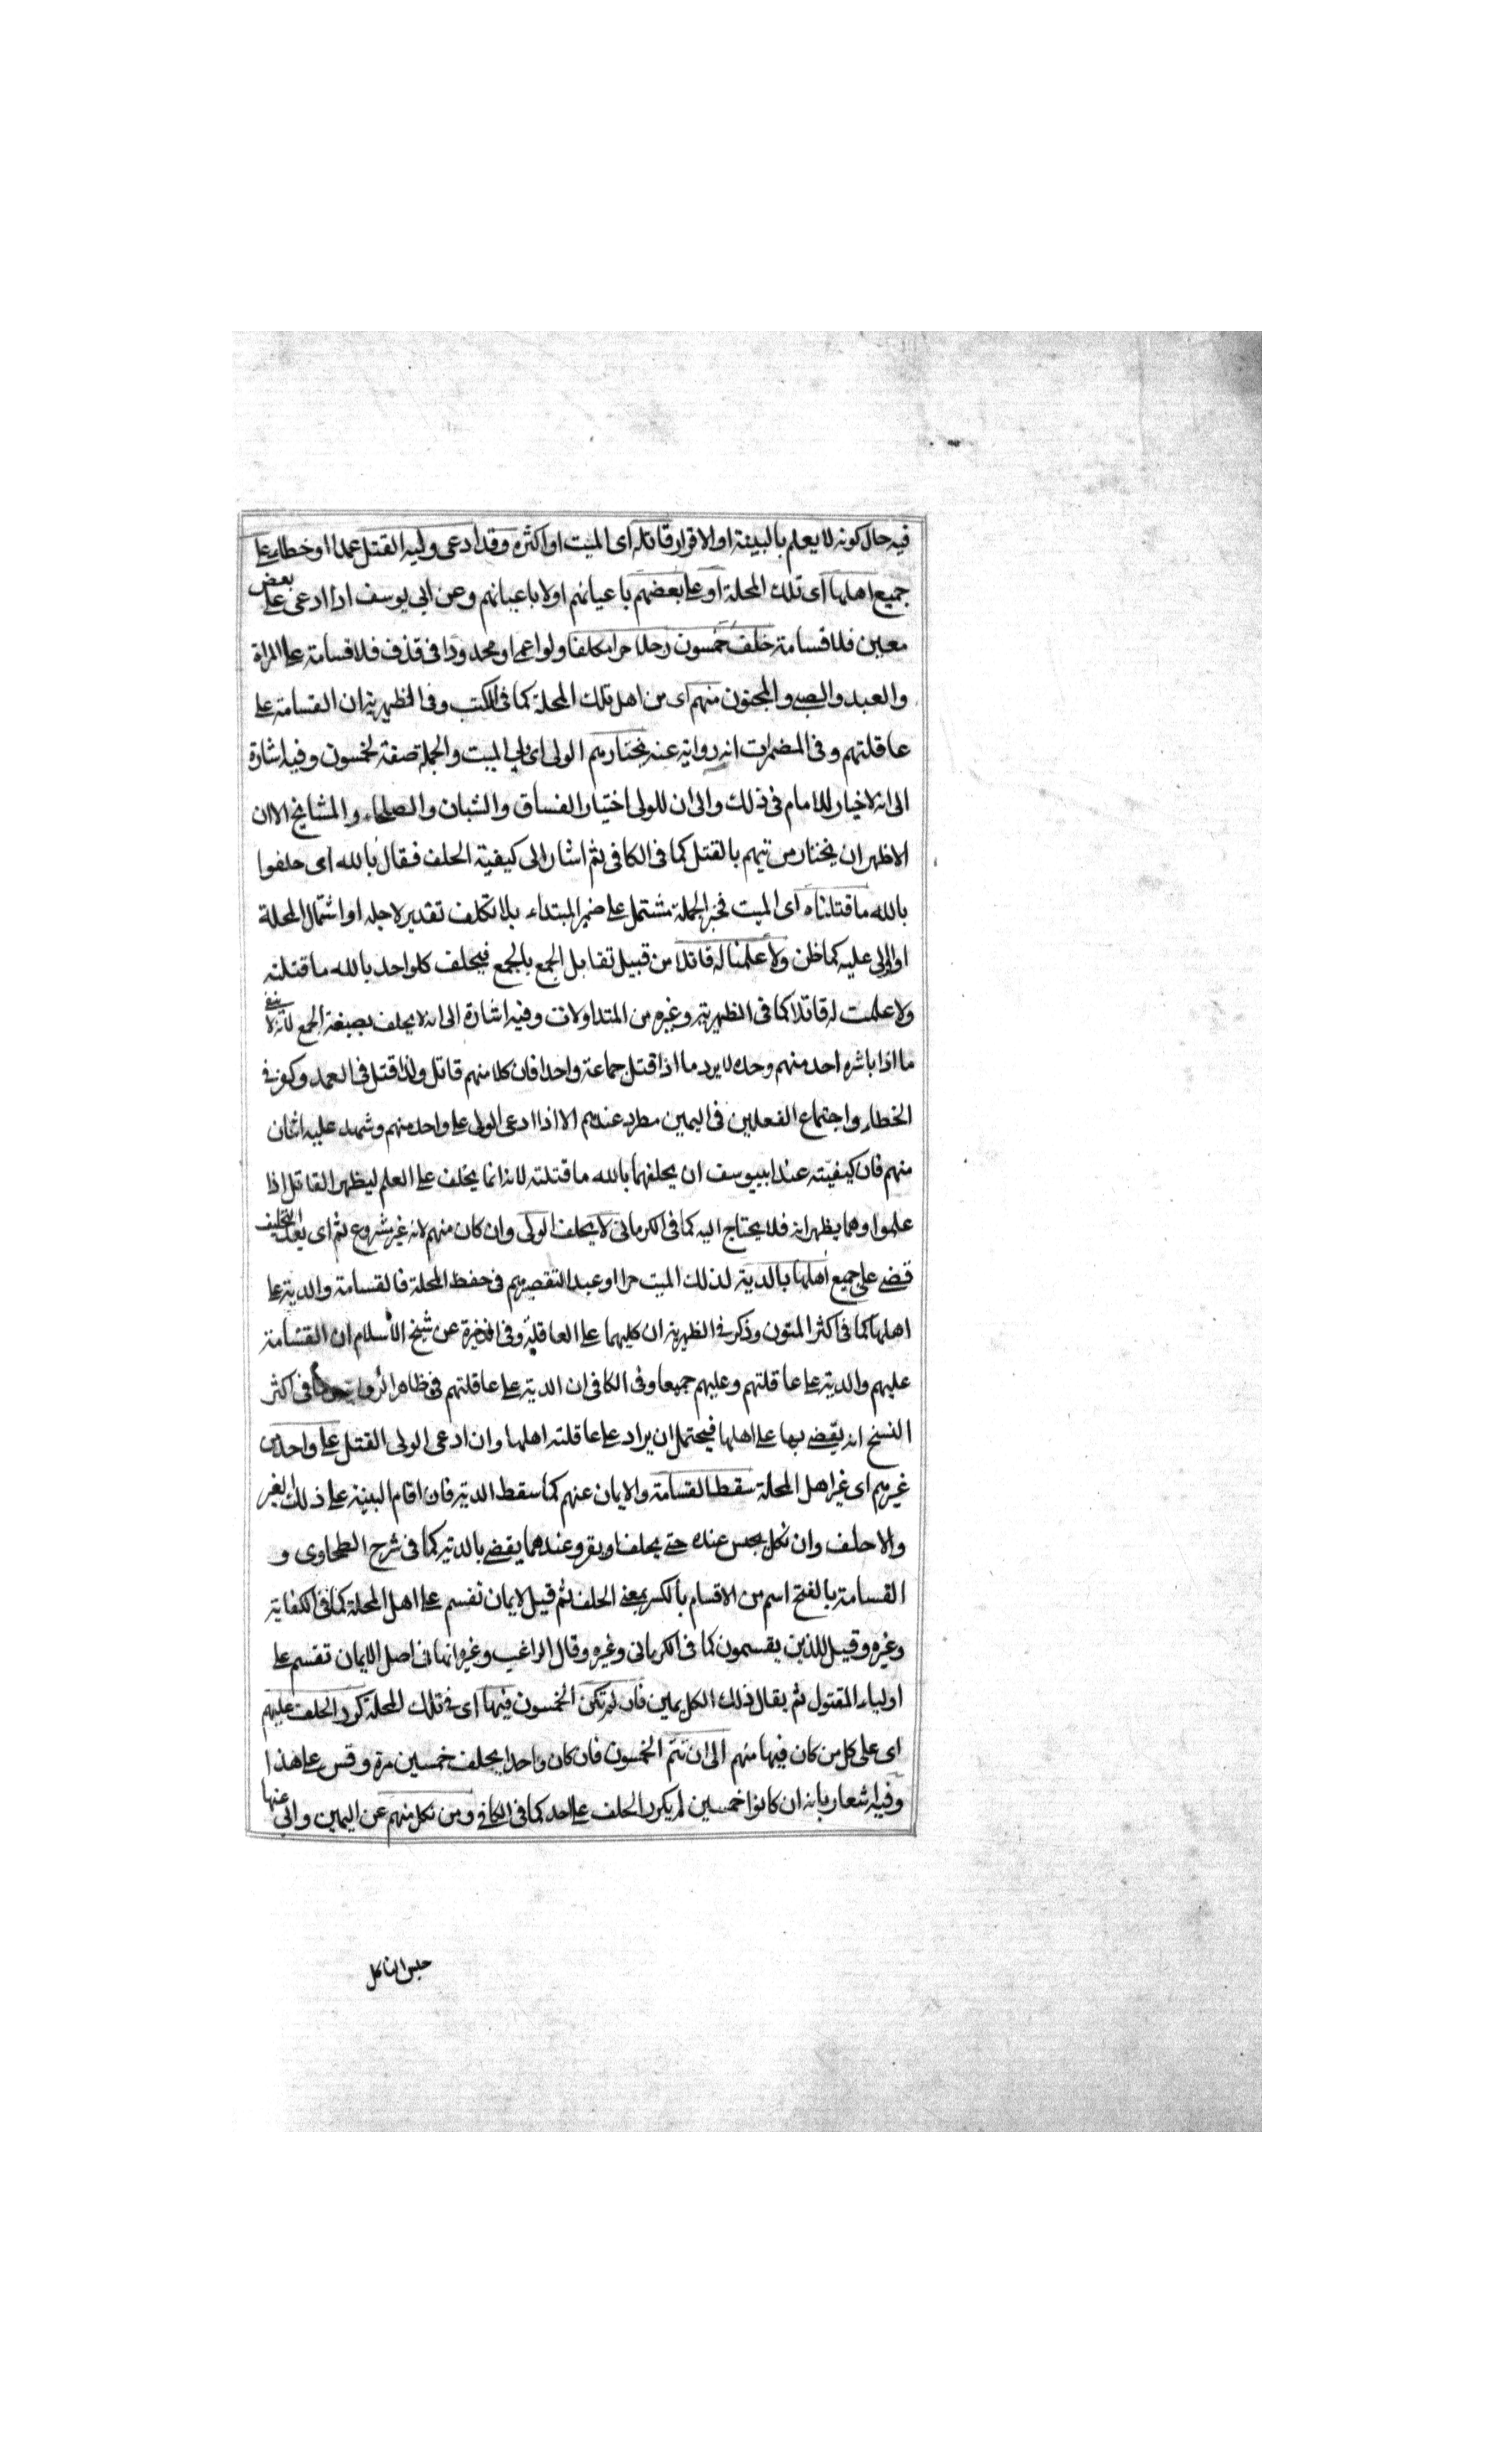 فيه حال كونه لا يعلم بالبينة او الاقرار قاتله اى الميت او اكثره وقد ادعى وليه القتل عمدا او خطاء على
جميع اهلها اى تلك المحلة او على بعضهم باعيانهم او لا باعيانهم وعن ابي يوسف اذا ادعى على بعض
معين فلا قسامة حلف خمسون رجلا حرا مكلفا ولو اعمى او محدودا فى قذف فلا قسامة على المراة
والعبد والصبى والمجنون منهم اى من اهل تلك المحلة كما فى الكتب وفى الظهيرية ان القسامة على
عاقلتهم وفى المضمرات انه رواية عنه يختارهم الولى اى ولى الميت والجملة صفة لخمسون وفيه اشارة
الى انه لا خيار للامام فى ذلك والى ان للولى اختيار الفساق والشبان والصلحاء والمشايخ الا ان
الاظهر ان يختار من يتهم بالقتل كما فى الكافى ثم اشار الى كيفية الحلف فقال بالله اى حلفوا
بالله ما قتلناه اى الميت فخبر الجملة مشتمل على ضمير المبتداء بلا تكلف تقدير لاجله او اشتمال المحلة
او الولى عليه كما ظن ولا علمنا له قاتلا من قبيل تقابل الجمع بالجمع فيحلف كل واحد بالله ما قتلته
ولا علمت له قاتلا كما فى الظهيرية وغيره من المتداولات وفيه اشارة الى انه لا يحلف بصيغة الجمع لانه لا ينفى
ما اذا باشره احد منهم وحده لا يرد ما اذا قتل جماعة واحدا فان كلا منهم قاتل ولذا قتل فى العمد وكفر فى
الخطاء واجتماع الفعلين فى اليمين مطرد عندهم الا اذا ادعى الولى على واحد منهم وشهد عليه اثنان
منهم فان كيفيته عند ابييوسف ان يحلفهما بالله ما قتلته لانه انما يحلف على العلم ليظهر القاتل اذا
علموا وهما يظهرانه فلا يحتاج اليه كما فى الكرمانى لا يحلف الولى وان كان منهم لانه غير مشروع ثم اى بعد التحليف
قضى على جميع اهلها بالدية لذلك الميت حرا او عبدا لتقصيرهم فى حفظ المحلة فالقسامة والدية على
اهلها كما فى اكثر المتون وذكر فى الظهيرية ان كليهما على العاقلة وفى الذخيرة عن شيخ الاسلام ان القسامة
عليهم والدية على عاقلتهم وعليهم جميعا وفى الكافى ان الدية على عاقلتهم فى ظاهر الرواية فى اكثر
النسخ انه يقضى بها على اهلها فيحتمل ان يراد على عاقلة اهلها وان ادعى الولى القتل على واحد من
غيرهم اى غير اهل المحلة سقط القسامة والايمان عنهم كما سقط الدية فان اقام البينة على ذلك الغير
والا حلف وان نكل يحبس عنده حتى يحلف او يقر وعندهما يقضى بالدية كما فى شرح الطحاوى و
القسامة بالفتح اسم من الاقسام بالكسر بمعنى الحلف ثم قيل لايمان تقسم على اهل المحلة كما فى الكفاية
وغيره وقيل للذين يقسمون كما فى الكرمانى وغيره وقال الراغب وغيره انها فى اصل الايمان تقسم على
اولياء المقتول ثم يقال ذلك الكل يمين فان لم تكن الخمسون فيها اى فى تلك المحلة كرر الحلف عليهم
اى على كل من كان فيها منهم الى ان تتم الخمسون فان كان واحدا يحلف خمسين مرة وقس على هذا
وفيه اشعار بانه ان كانوا خمسين لم يكرر الحلف على احد كما فى الكافى ومن نكل منهم عن اليمين وابى عنها
حبس الناكل